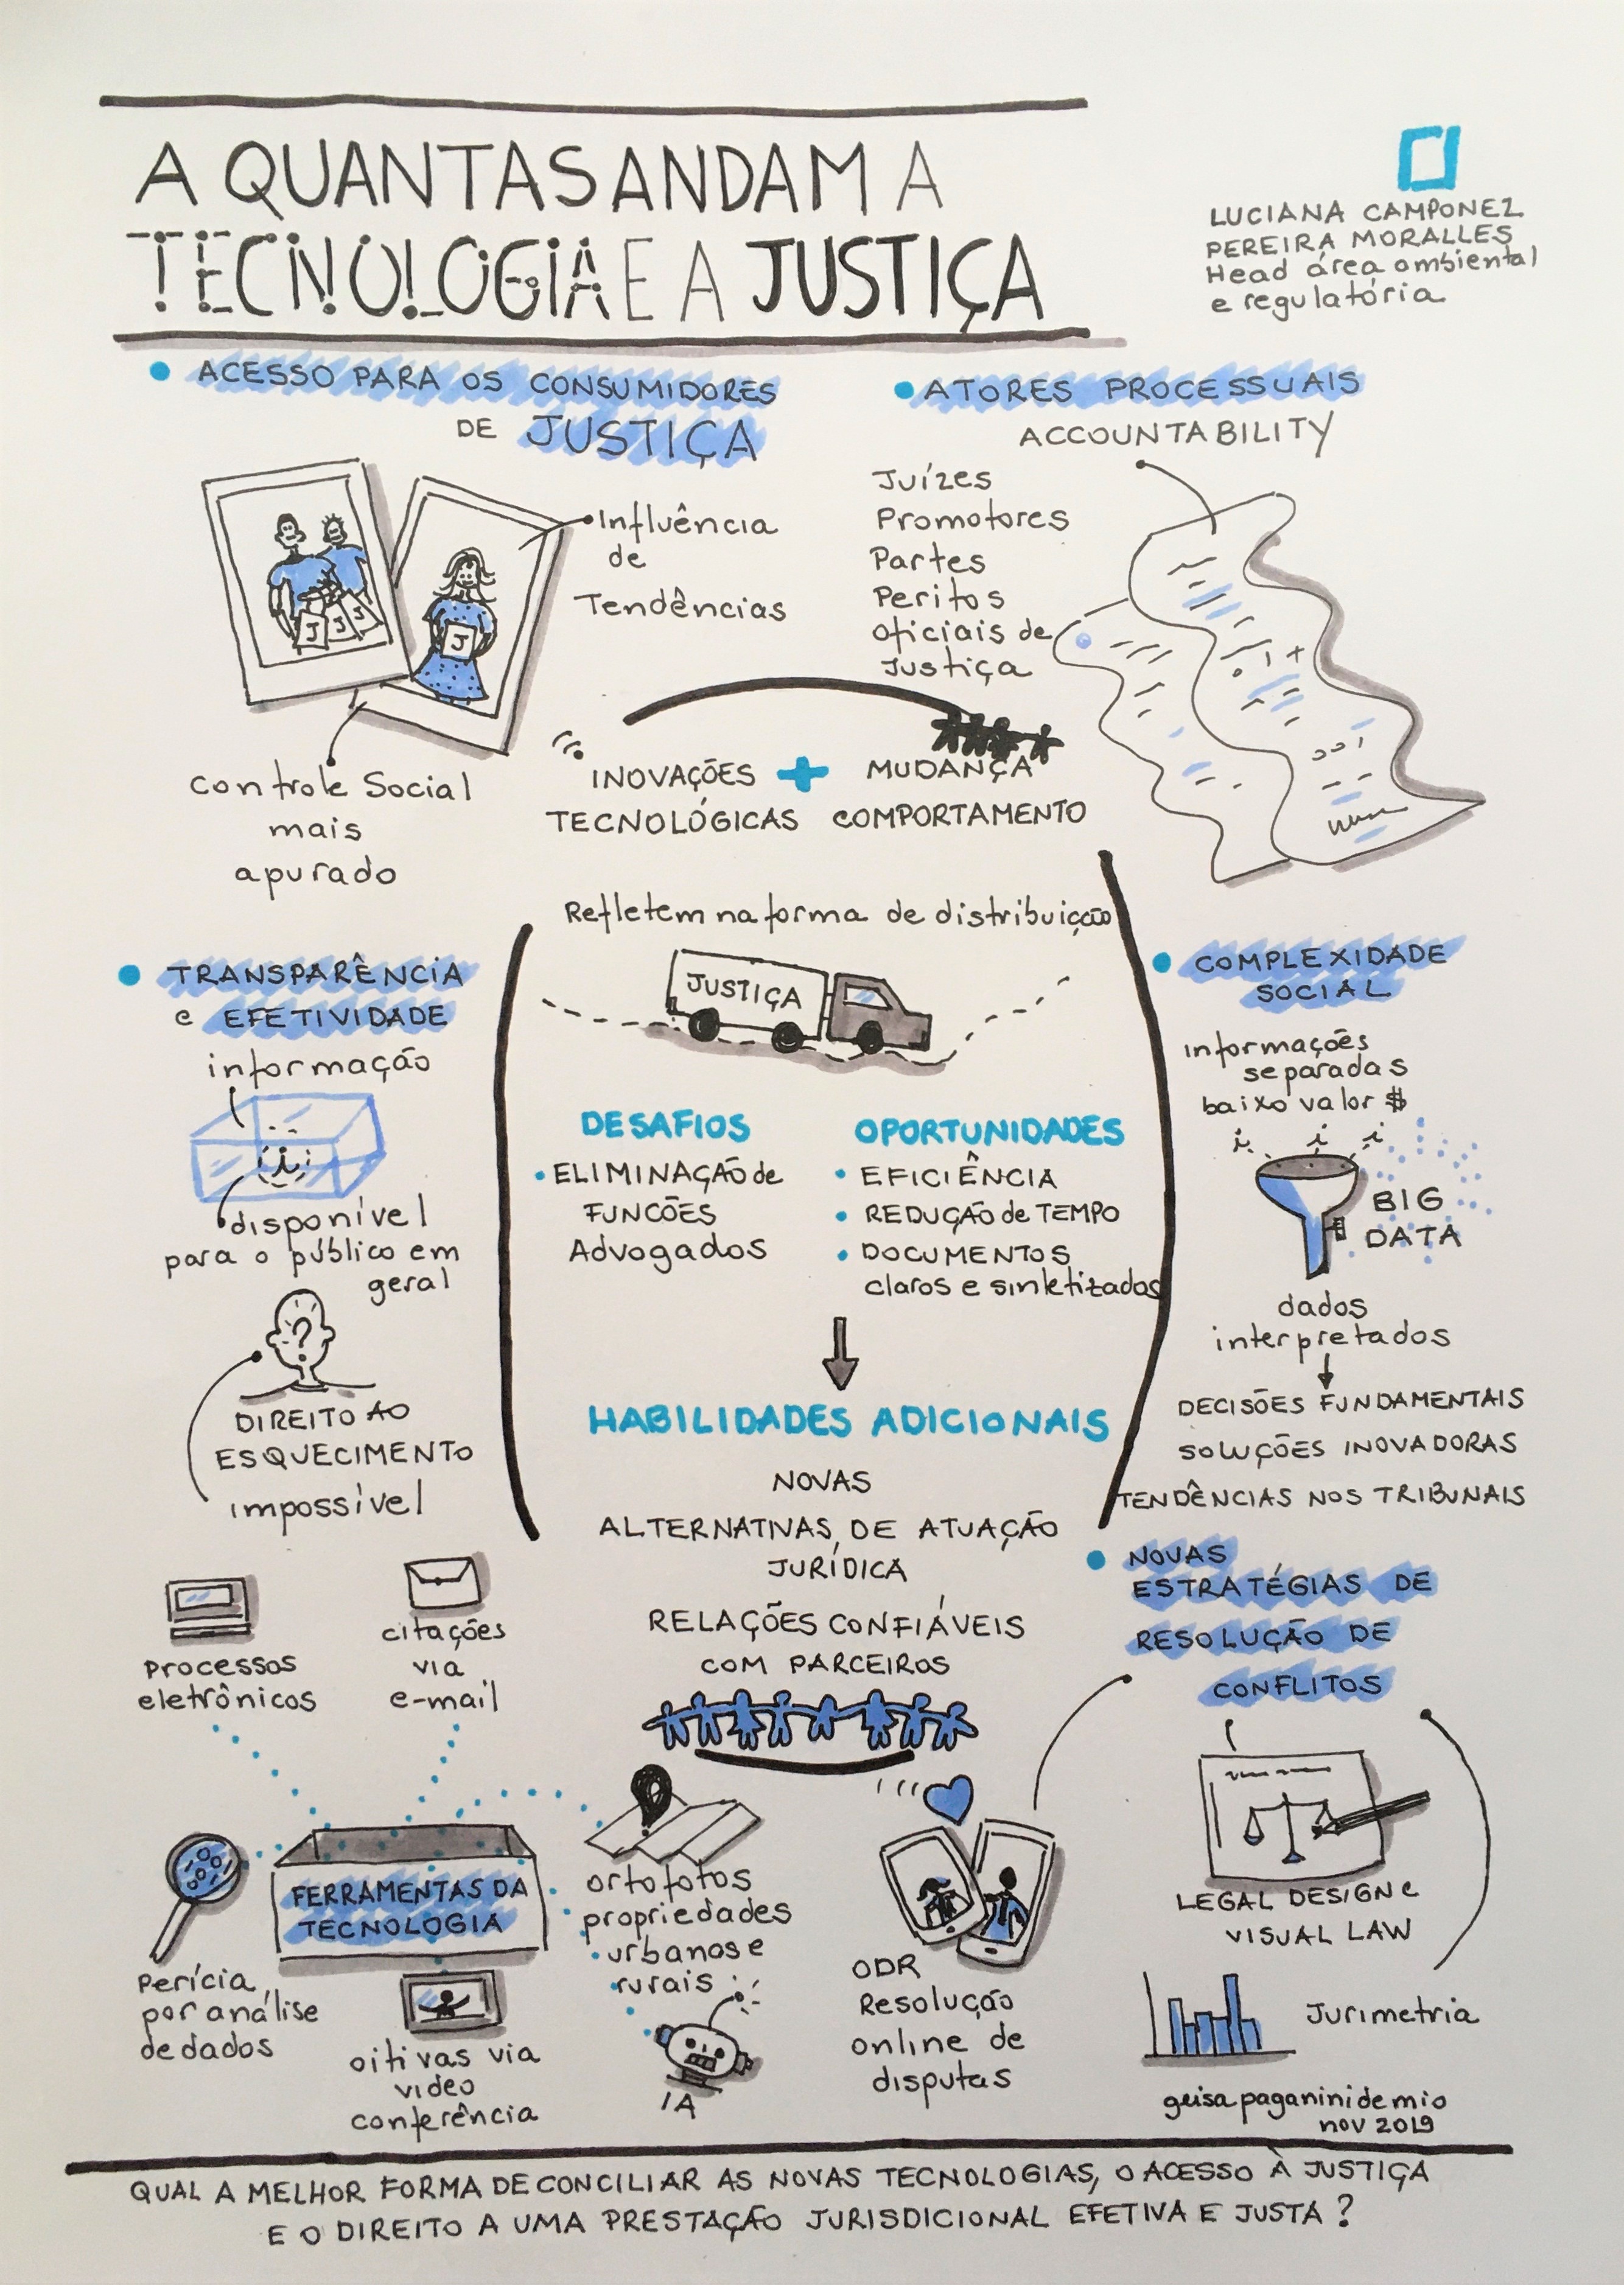 A QUANTAS ANDAM A
TECNOLOGIA E A JUSTIÇA
LUCIANA CAMPONEZ
PEREIRA MORALLES
Head área ambiental
e regulatória
ACESSO PARA OS CONSUMIDORES
DE JUSTIÇA
Influência
de
Tendências
J J J
J
Controle Social
mais
apurado
ATORES PROCESSUAIS
ACCOUNTABILITY
Juízes
Promotores
Partes
Peritos
oficiais de
Justiça
INOVAÇÕES + MUDANÇA
TECNOLÓGICAS COMPORTAMENTO
Refletem na forma de distribuição
JUSTIÇA
DESAFIOS
• ELIMINAÇÃO de
FUNCÕES
Advogados
OPORTUNIDADES
• EFICIÊNCIA
• REDUÇÃO de TEMPO
• DOCUMENTOS
claros e sintetizados
HABILIDADES ADICIONAIS
NOVAS
ALTERNATIVAS DE ATUAÇÃO
JURÍDICA
RELAÇÕES CONFIÁVEIS
COM PARCEIROS
TRANSPARÊNCIA
e EFETIVIDADE
informação
i
disponível
para o público em
geral
?
DIREITO AO
ESQUECIMENTO
impossível
COMPLEXIDADE
SOCIAL
informações
separadas
baixo valor $
i i i
BIG
DATA
dados
interpretados
DECISÕES FUNDAMENTAIS
SOLUÇÕES INOVADORAS
TENDÊNCIAS NOS TRIBUNAIS
NOVAS
ESTRATÉGIAS DE
RESOLUÇÃO DE
CONFLITOS
LEGAL DESIGN e
VISUAL LAW
Jurimetria
ODR
Resolução
online de
disputas
Processos
eletrônicos
citações
via
e-mail
FERRAMENTAS DA
TECNOLOGIA
Perícia
por análise
de dados
oitivas via
video
conferência
ortofotos
propriedades
urbanas e
rurais
IA
geisa paganini de mio
nov 2019
QUAL A MELHOR FORMA DE CONCILIAR AS NOVAS TECNOLOGIAS, O ACESSO À JUSTIÇA
E O DIREITO A UMA PRESTAÇÃO JURISDICIONAL EFETIVA E JUSTA ?